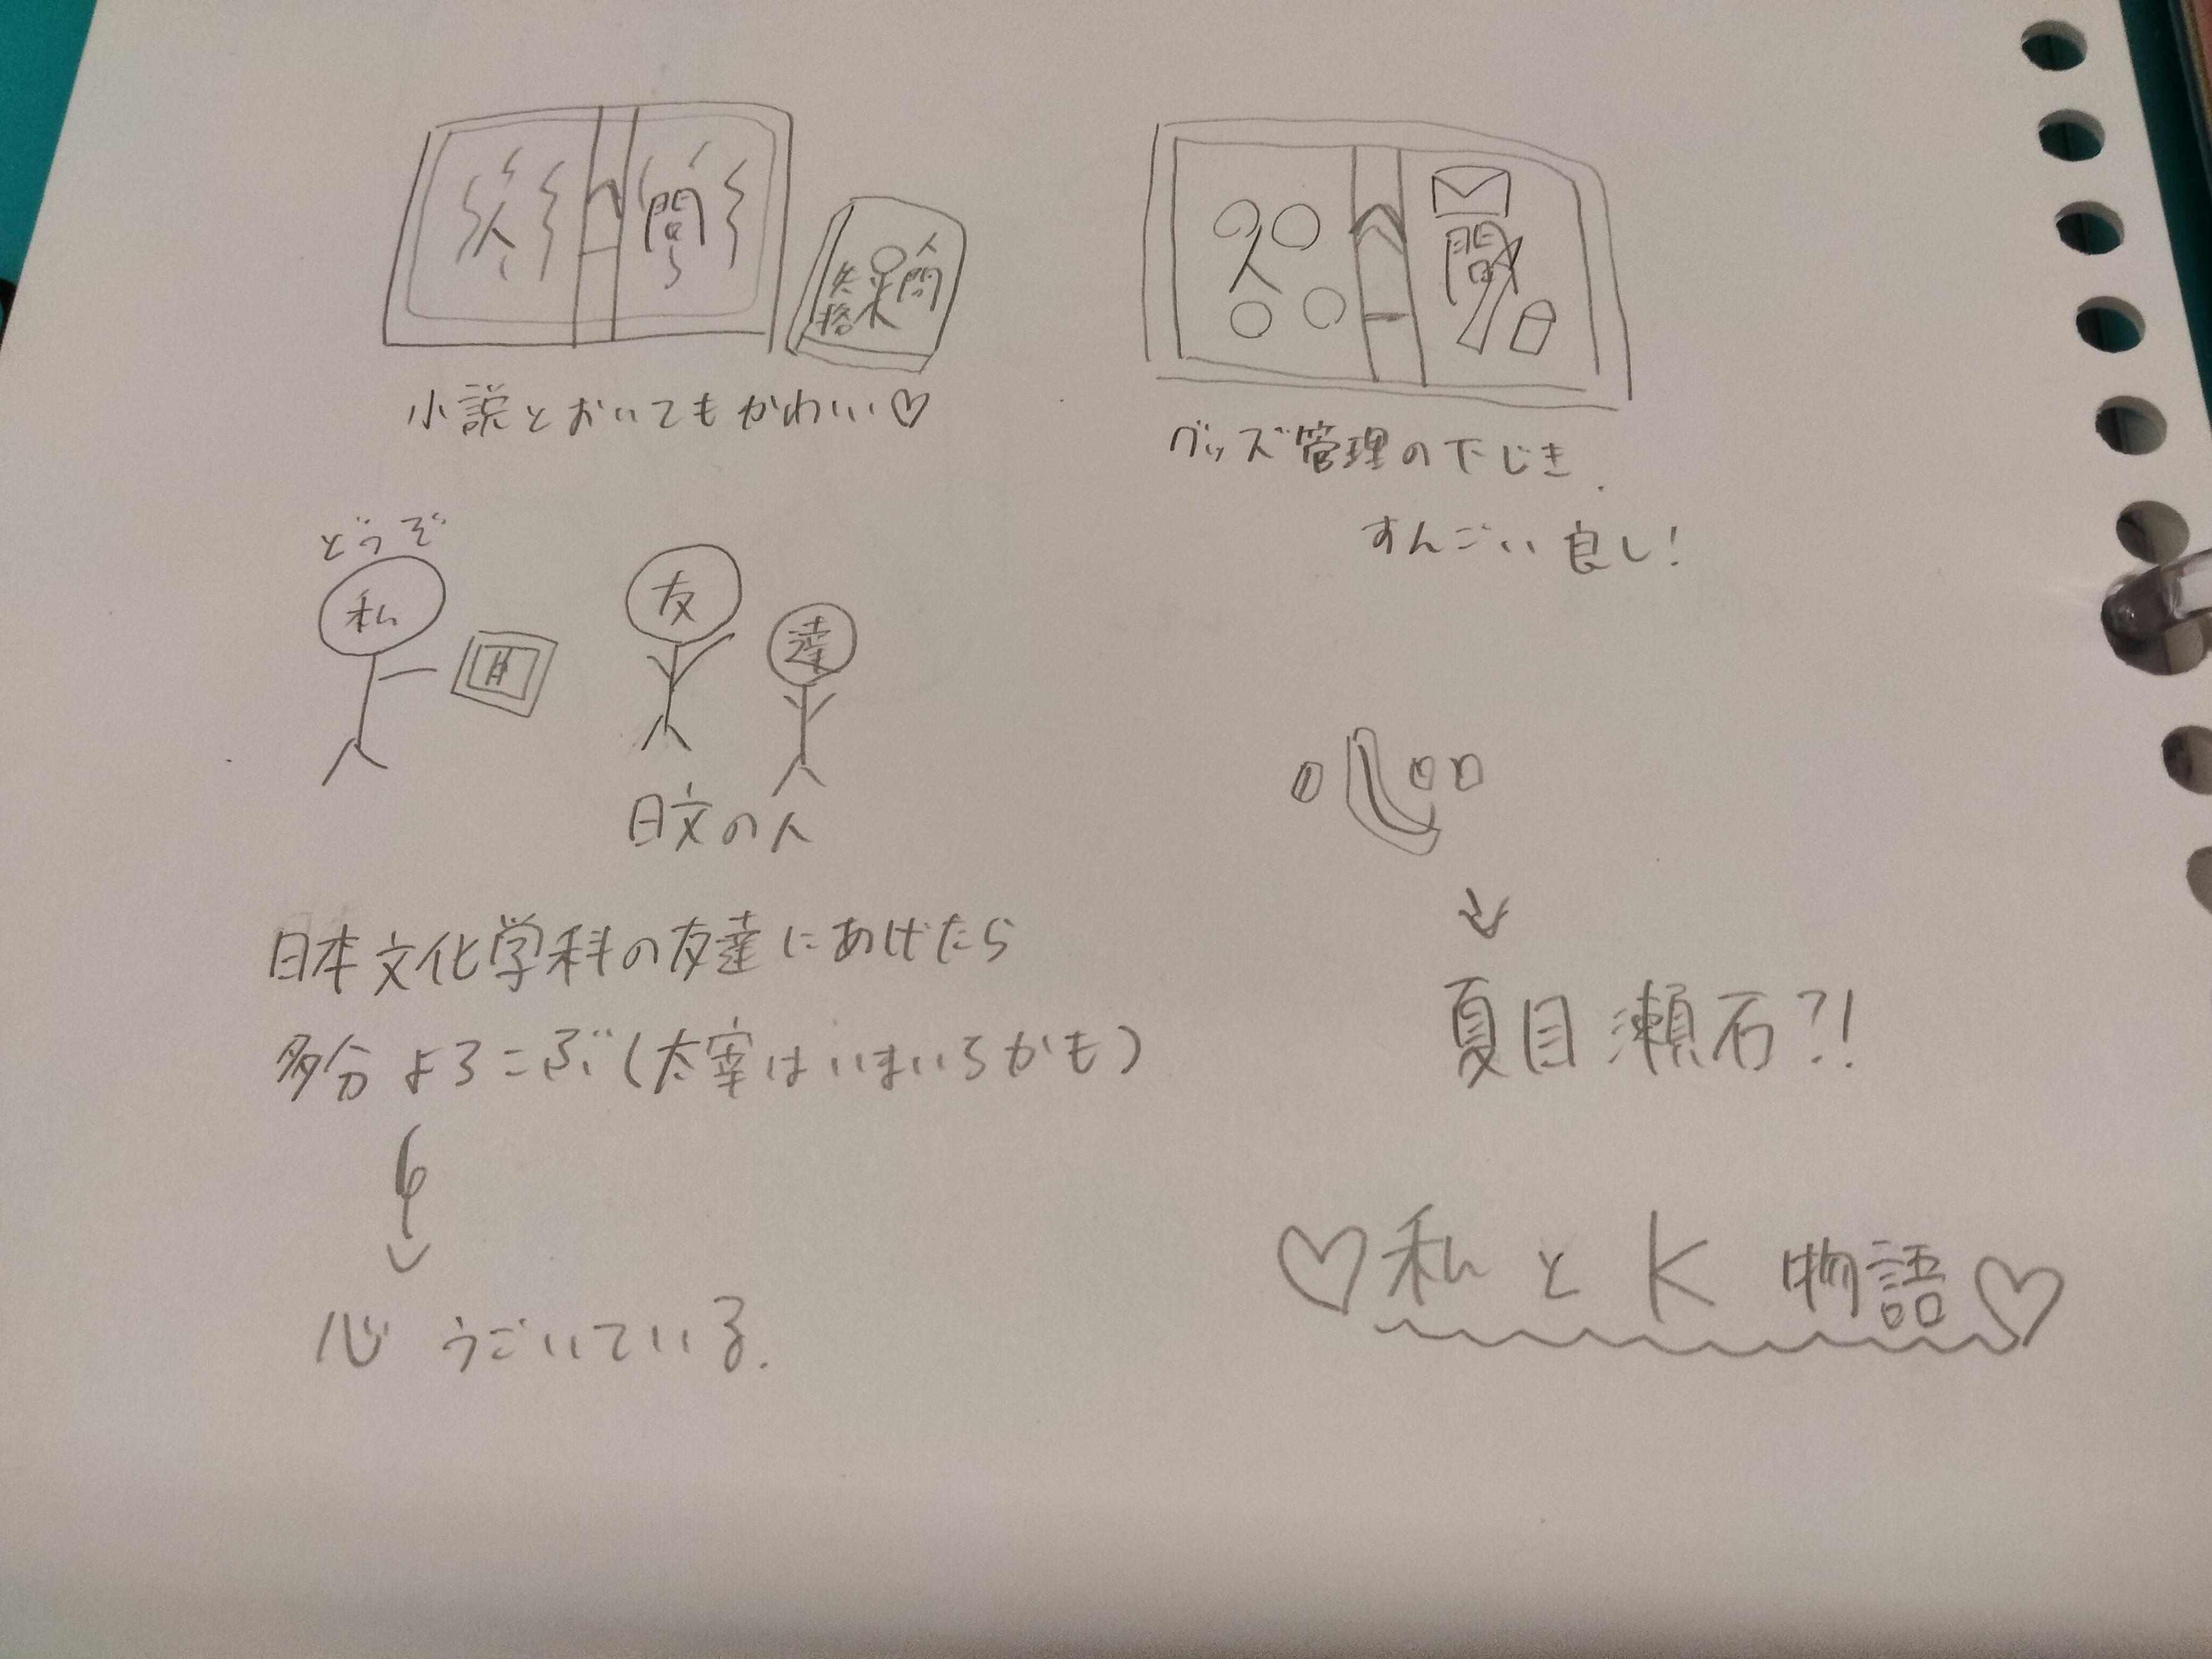 人 間
人間
失格
小説とおいてもかわいい♡
人 間
グッズ管理の下じき
すんごい良し!
どうぞ
私
友
達
日文の人
日本文化学科の友達にあげたら
多分よろこぶ(太宰はいまいちかも)
心 うごいている.
心
夏目瀬石?!
♡私とK物語♡